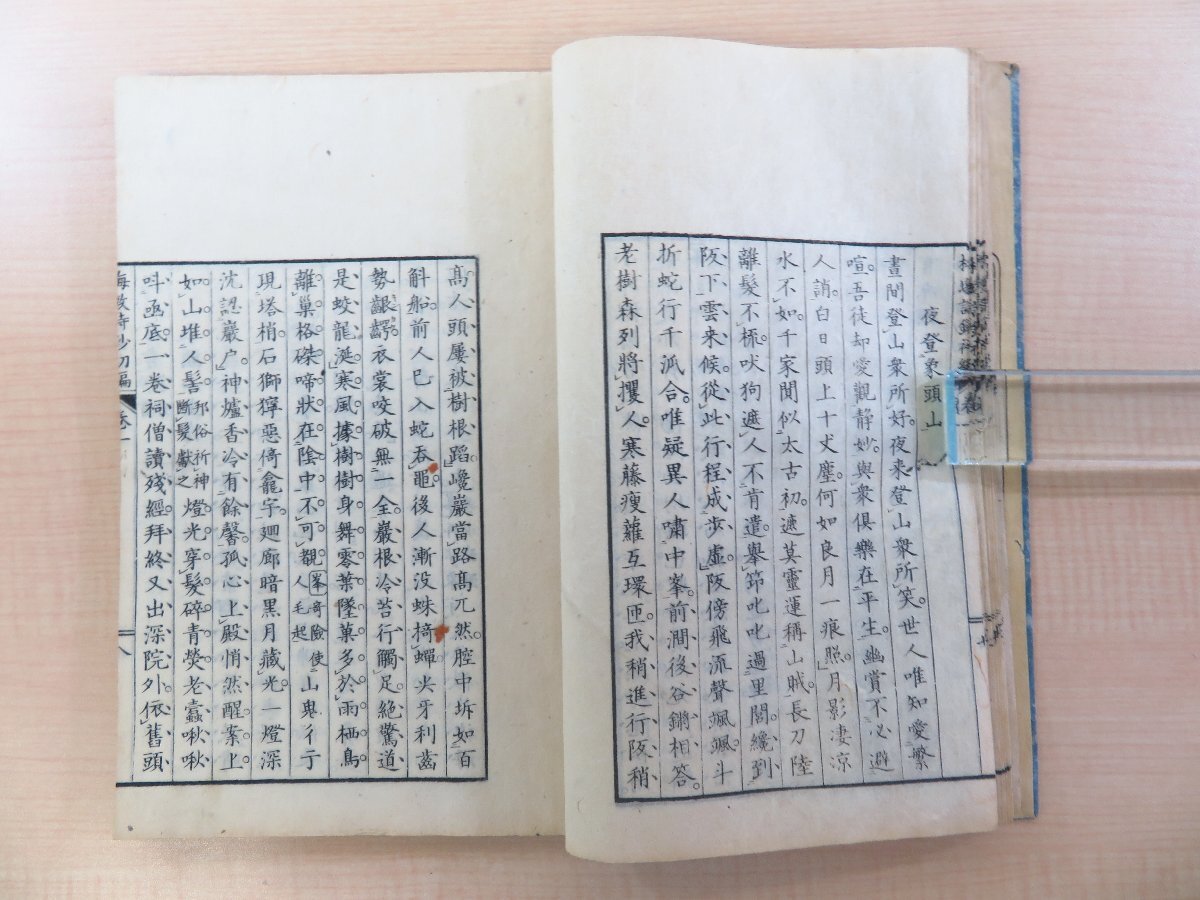 夜登象頭山
晝間登山衆所好。夜來登山衆所笑。世人唯知愛繁
喧。吾徒却愛觀靜妙。與衆俱樂在平生。幽賞不必避
人誚。白日頭上十丈塵。何如良月一痕照。月影凄涼
水不如。千家闃似太古初。遮莫靈運稱山賊。長刀陸
離髮不梳。吠狗遮人不肯遣。擧筇叱叱過里閭。纔到
阪下雲來候。從此行程成步虛。阪傍飛流聲颯颯。斗
折蛇行千派合。唯疑異人嘯中峯。前澗後谷鏘相答。
老樹森列將攫人。寒藤瘦蘿互環匝。我稍進行阪稍
高。人頭屢被樹根蹈。巉巖當路高兀然。腔中坼如百
斛船。前人已入蛇吞黽。後人漸沒蛛掎蟬。尖牙利齒
勢齦齶。衣裳咬破無一全。巖根冷苔行觸足。絕驚道
是蛟龍涎。寒風據樹樹身舞。零葉墜菓多於雨。栖鳥
離巢格磔啼。狀在陰中不可覩。人毛起
峯奇險使
山鬼彳亍
現塔梢。石獅獰惡倚龕宇。廻廊暗黑月藏光。一燈深
沈認巖戶。神爐香冷有餘馨。孤心上殿悄然醒。案上
如山堆人髻
邦俗祈神
斷髮獻之
燈光穿髮碎靑熒。老蠹啾啾
呌函底。一卷祠僧讀殘經。拜終又出深院外。依舊頭
梅墩詩鈔初編
卷一
八